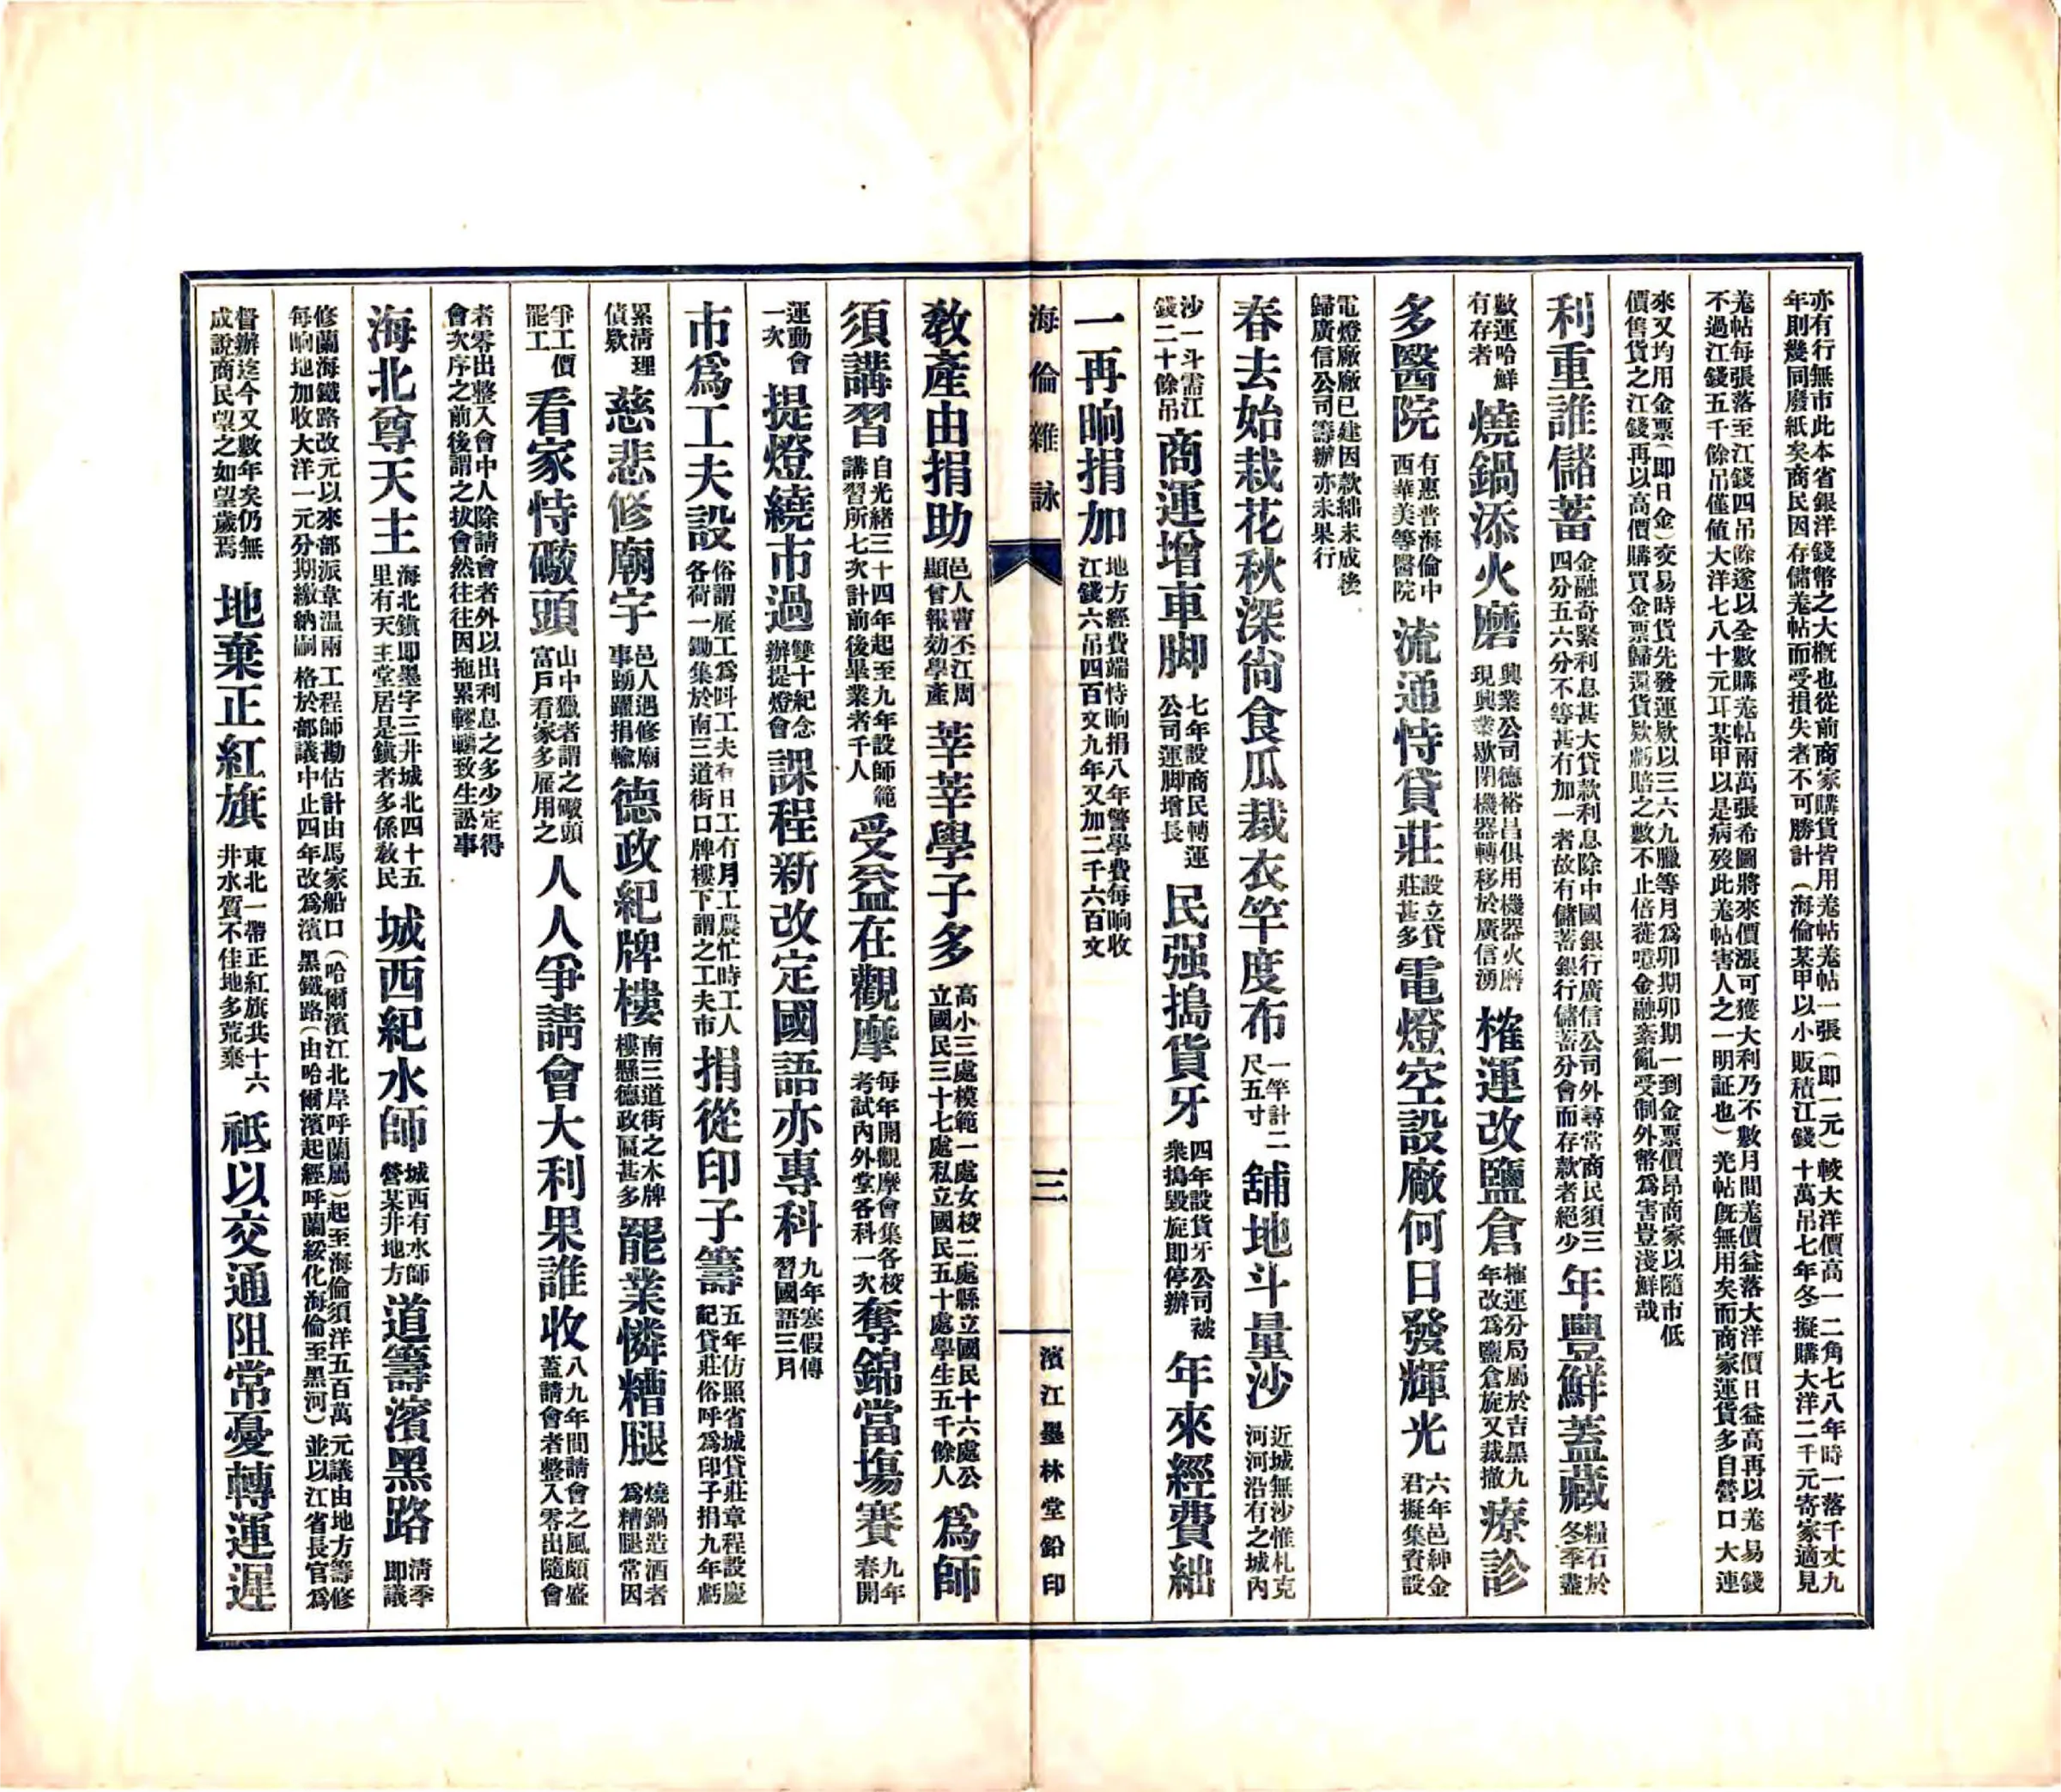 亦有行無市此本省銀洋錢幣之大槪也從前商家購貨皆用羗帖羗帖一張（卽一元）較大洋價高一二角七八年時一落千丈九
年則幾同廢紙矣商民因存儲羗帖而受損失者不可勝計（海倫某甲以小販積江錢十萬吊七年冬擬購大洋二千元寄家適見
羗帖每張落至江錢四吊餘遂以全數購羗帖兩萬張希圖將來價漲可獲大利乃不數月間羗價益落大洋價日益高再以羗易錢
不過江錢五千餘吊僅値大洋七八十元耳某甲以是病歿此羗帖害人之一明証也）羌帖旣無用矣而商家運貨多自營口大連
來又均用金票（卽日金）交易時貨先發運欵以三六九臘等月爲卯期卯期一到金票價昂商家以隨市低
價售貨之江錢再以高價購買金票歸還貨欵虧賠之數不止倍蓰噫金融紊亂受制外幣爲害豈淺鮮哉
利重誰儲蓄 金融奇緊利息甚大貸款利息除中國銀行廣信公司外尋常商民須三
四分五六分不等甚有加一者故有儲蓄銀行儲蓄分會而存款者絕少 年豐鮮蓋藏 糧石於
冬季盡
數運哈鮮
有存者 燒鍋添火磨 興業公司德裕昌俱用機器火磨
現興業歇閉機器轉移於廣信湧 榷運改鹽倉 榷運分局屬於吉黑九
年改爲鹽倉旋又裁撤 療診
多醫院 有惠普海倫中
西華美等醫院 流通恃貸莊 設立貸
莊甚多 電燈空設廠何日發輝光 六年邑紳金
君擬集資設
電燈廠廠已建因款絀未成後
歸廣信公司籌辦亦未果行
春去始栽花秋深尙食瓜裁衣竿度布 一竿計二
尺五寸 舖地斗量沙 近城無沙惟札克
河河沿有之城內
沙一斗需江
錢二十餘吊 商運增車脚 七年設商民轉運
公司運脚增長 民强搗貨牙 四年設貨牙公司被
衆搗毀旋即停辦 年來經費絀
一再晌捐加 地方經費端恃晌捐八年警學費每晌收
江錢六吊四百文九年又加二千六百文
海倫雜詠 三 濱江墨林堂鉛印
敎產由捐助 邑人曹丕江周
顯曾報効學產 莘莘學子多 高小三處模範一處女校二處縣立國民十六處公
立國民三十七處私立國民五十處學生五千餘人 爲師
須講習 自光緒三十四年起至九年設師範
講習所七次計前後畢業者千人 受益在觀摩 每年開觀摩會集各校
考試內外堂各科一次 奪錦當場賽 九年
春開
運動會
一次 提燈繞市過 雙十紀念
辦提燈會 課程新改定國語亦專科 九年寒假傳
習國語三月
市爲工夫設 俗謂雇工爲呌工夫有日工有月工農忙時工人
各荷一鋤集於南三道街口牌樓下謂之工夫市 捐從印子籌 五年仿照省城貸莊章程設慶
記貸莊俗呼爲印子捐九年虧
累淸理
債欵 慈悲修廟宇 邑人遇修廟
事踴躍捐輸 德政紀牌樓 南三道街之木牌
樓懸德政匾甚多 罷業憐糟腿 燒鍋造酒者
爲糟腿常因
爭工價
罷工 看家恃礮頭 山中獵者謂之礮頭
富戶看家多雇用之 人人爭請會大利果誰收 八九年間請會之風頗盛
蓋請會者整入零出隨會
者零出整入會中人除請會者外以出利息之多少定得
會次序之前後謂之拔會然往往因拖累轇轕致生訟事
海北尊天主 海北鎭卽墨字三井城北四十五
里有天主堂居是鎭者多係敎民 城西紀水師 城西有水師
營某井地方 道籌濱黑路 淸季
卽議
修蘭海鐵路改元以來部派韋温兩工程師勘估計由馬家船口（哈爾濱江北岸呼蘭屬）起至海倫須洋五百萬元議由地方籌修
每晌地加收大洋一元分期繳納嗣格於部議中止四年改爲濱黑鐵路（由哈爾濱起經呼蘭綏化海倫至黑河）並以江省長官爲
督辦迄今又數年矣仍無
成說商民望之如望歲焉 地棄正紅旗 東北一帶正紅旗共十六
井水質不佳地多荒棄 祇以交通阻常憂轉運遲